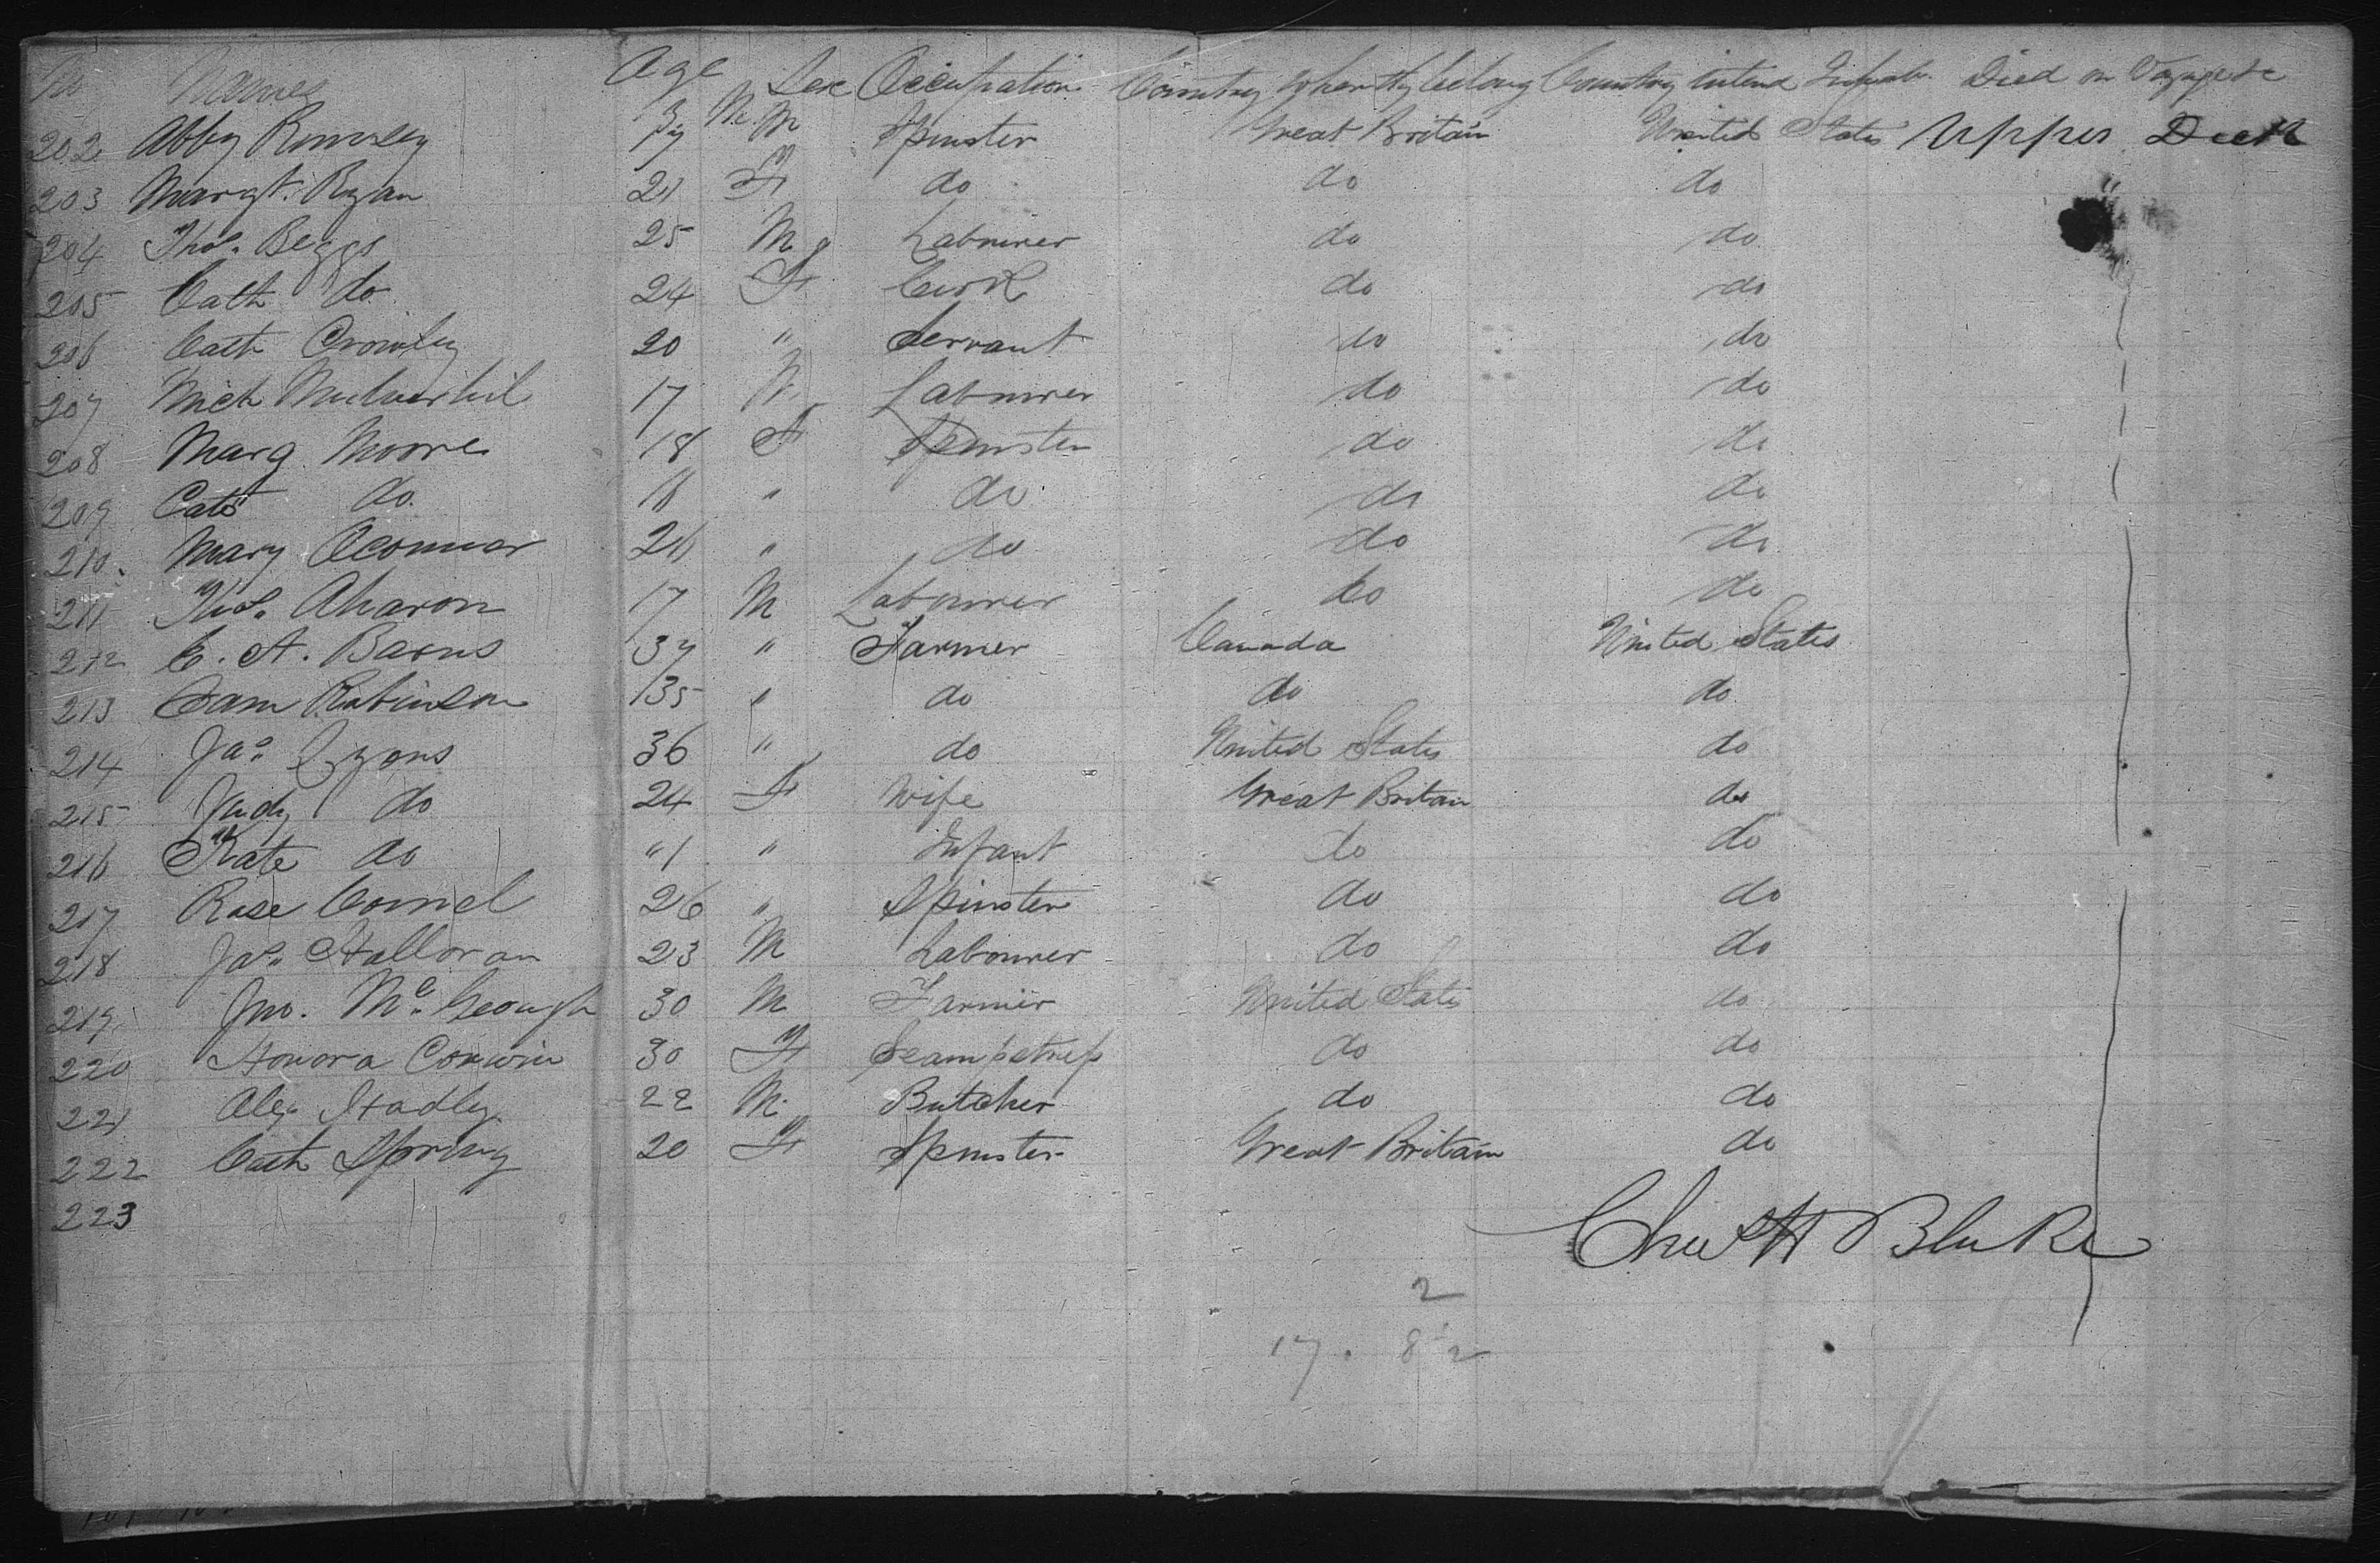 No Names Age Sex Occupation Country where they belong Country intend Inhab. Died on Voyage &c
202 Abby 19 Spinster Great Britain United States Upper Deck
203 Margt. Ryan 21 F do do do
204 Thos. Beggs 25 M Labourer do do
205 Cath do 24 F Cook do do
206 Cath Crowley 20 " Servant do do
207 Mich Mulverhil 17 M Labourer do do
208 Marg Moore 18 F Spinster do do
209 Cate do. 16 " do do do
210. Mary Oconnor 26 " do do do
211 Thos. Aharon 17 M Labourer do do
212 C. A. Barns 37 " Farmer Canada United States
213 Sam Robinson 35 " do do do
214 Jas Lyons 36 " do United States do
215 Judy do 24 F Wife Great Britain do
216 Kate do "1 " Infant do do
217 Rose Connel 26 " Spinster do do
218 Jas. Halloran 23 M Labourer do do
219 Jno. Mc. Geough 30 M Farmer United States do
220 Honora Conwin 30 F Seampstress do do
221 Alex Hadley 22 M. Butcher do do
222 Cath Spring 20 F Spinster Great Britain do
223
Chas H Blake
2
17. 82